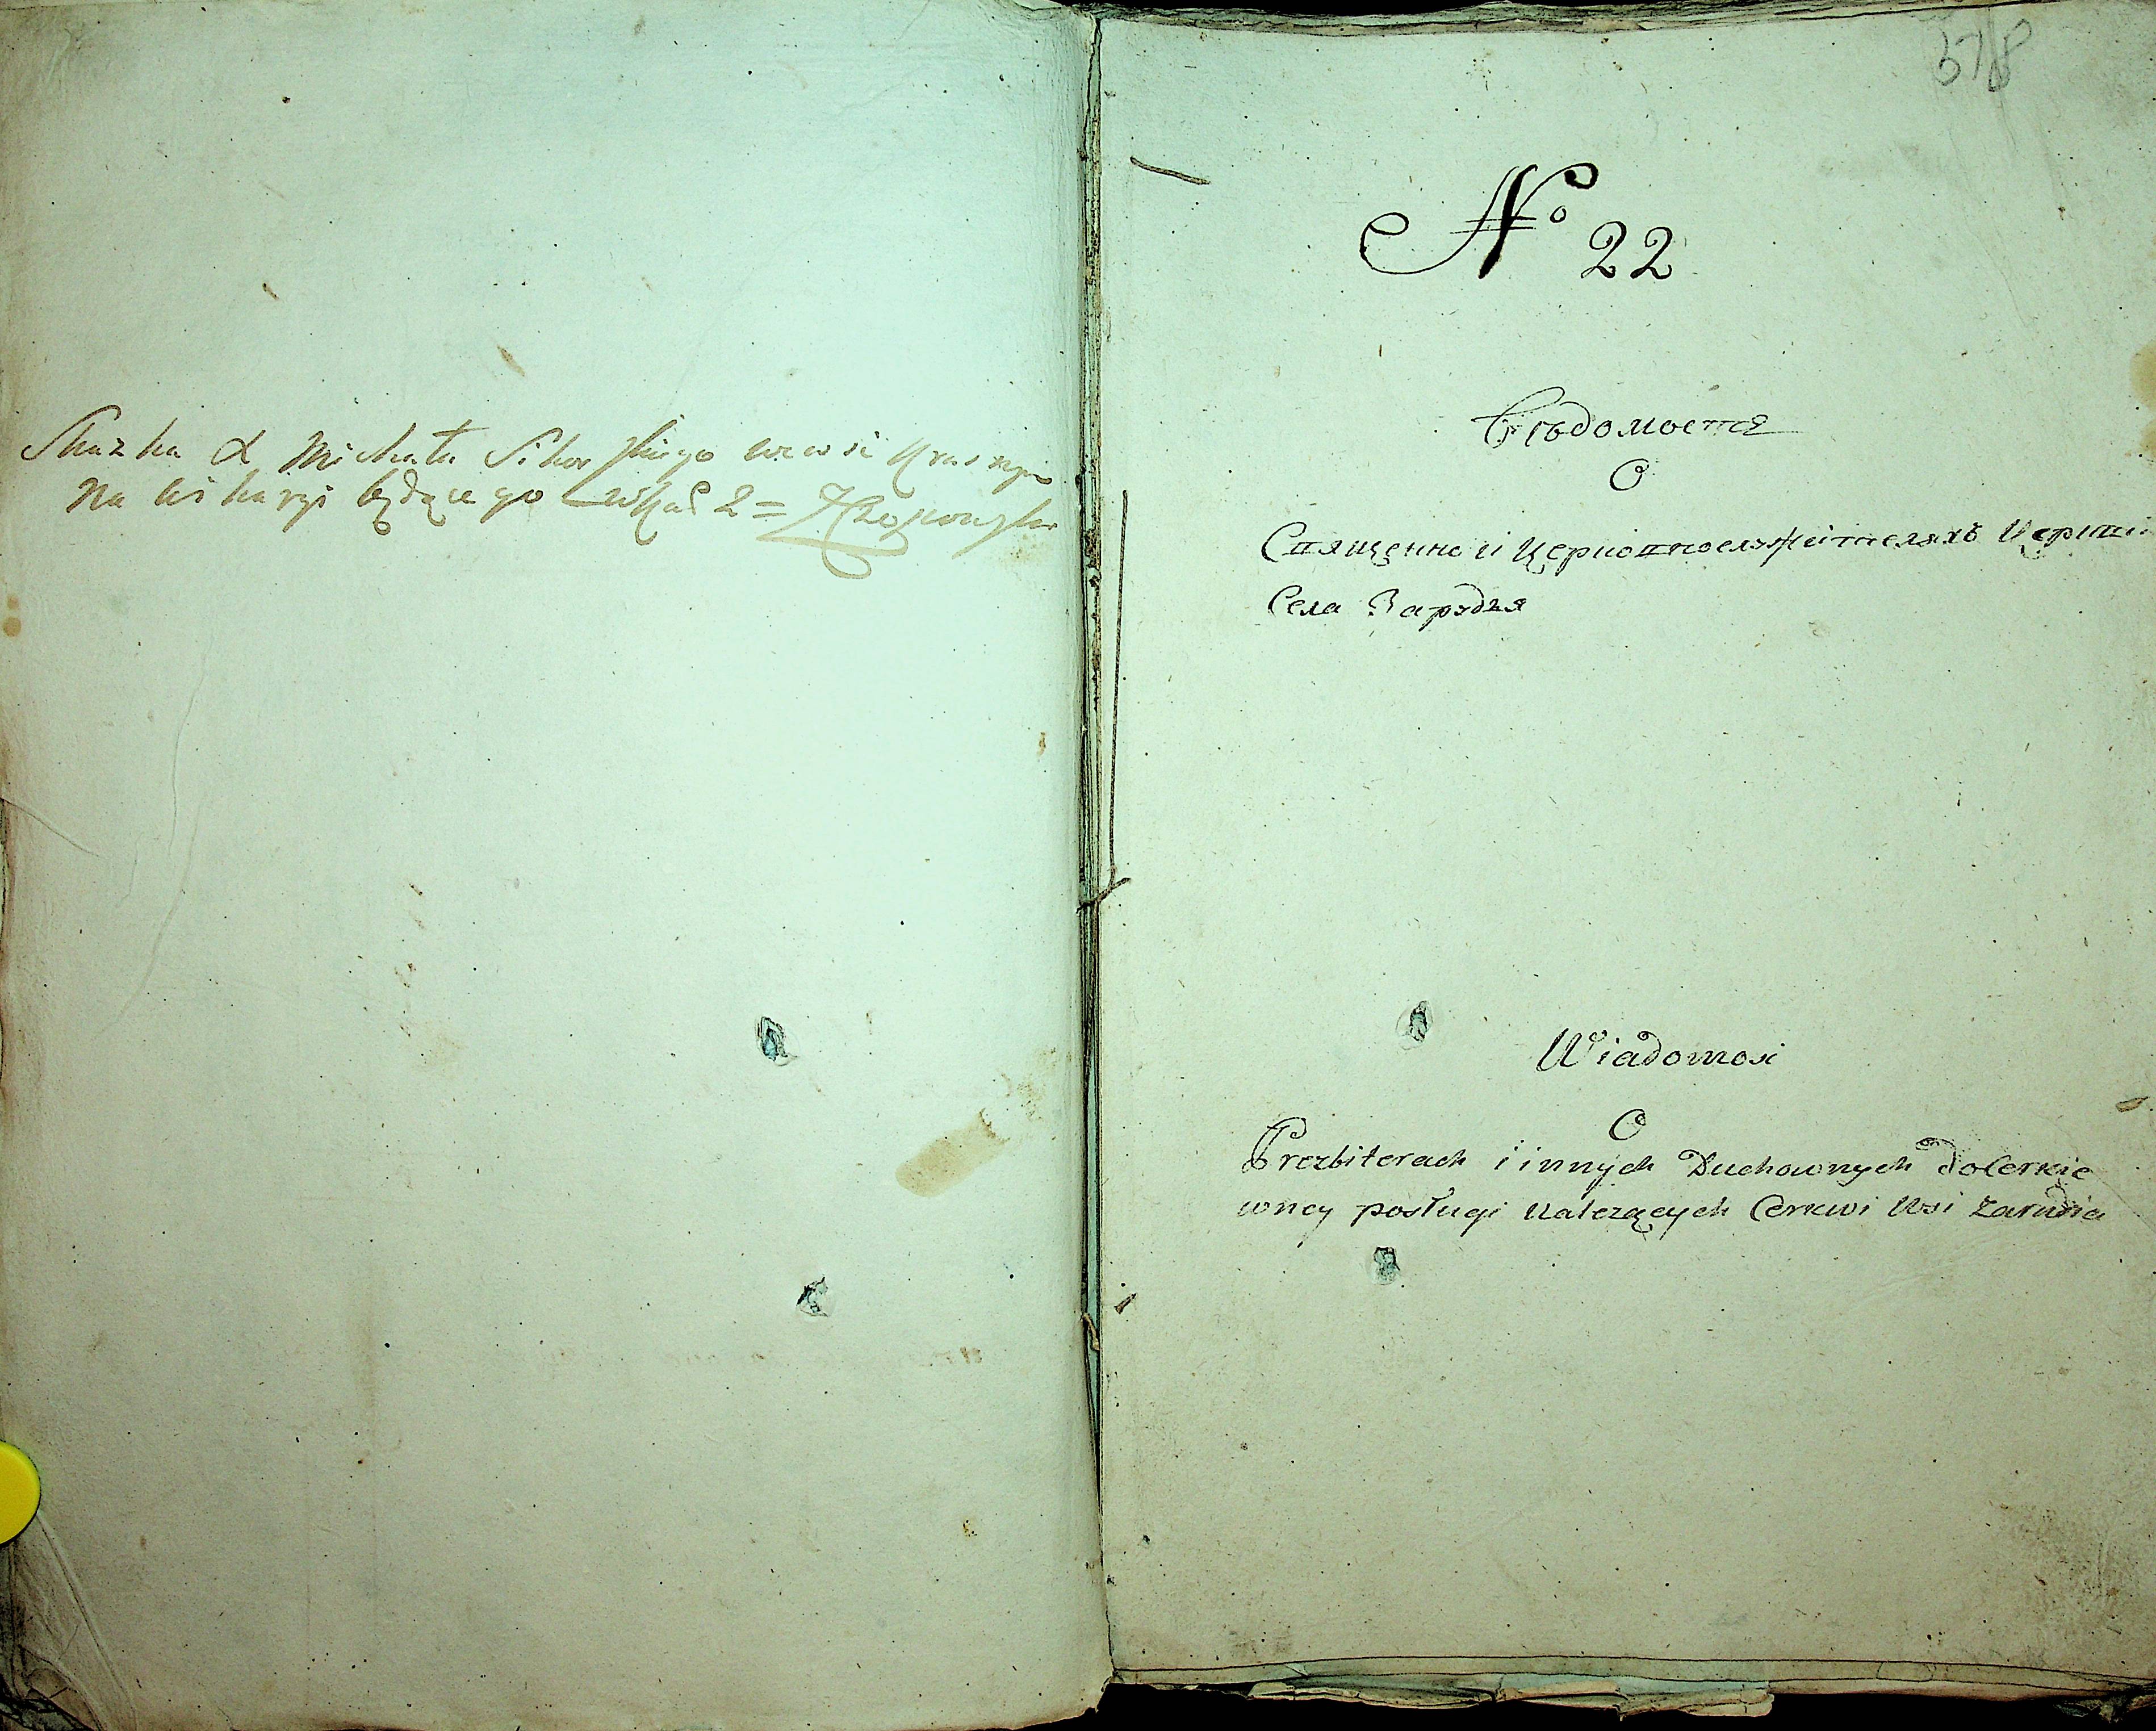 Skazka X Michała Sikorskiego we wsi
na wikaryi będącego
518
No 22
Вѣдомость
О
Священно и церковнослужителяхъ Церкви
Села Зарудья
Wiadomosć
O
Prezbiterach i innych Duchownych do Cerkie
wney posługi należących Cerkwi Wsi Zarudia